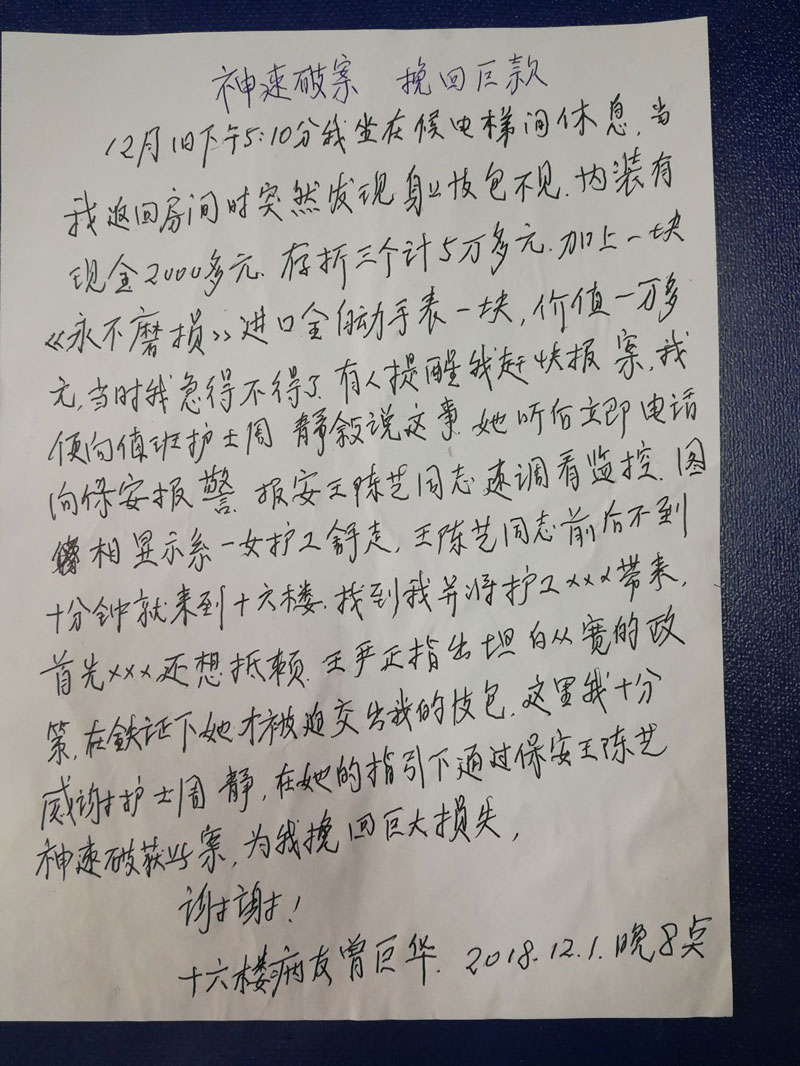 神速破案 挽回巨款
12月1日下午5:10分我坐在候电梯间休息,当
我返回房间时突然发现身上技包不见.内装有
现金2000多元.存折三个计5万多元.加上一块
《永不磨损》进口全自动手表一块,价值一万多
元,当时我急得不得了.有人提醒我赶快报案,我
便向值班护士周 静叙说这事.她听后立即电话
向保安报警.报安王陈艺同志速调看监控.图
相显示系一女护工 走,王陈艺同志前后不到
十分钟就来到十六楼.找到我并将护工×××带来,
首先×××还想抵赖.王严正指出坦白从宽的政
策,在铁证下她才被迫交出我的技包.这里我十分
感谢护士周 静,在她的指引下通过保安王陈艺
神速破获此案,为我挽回巨大损失,
谢谢!
十六楼病友曾巨华.2018.12.1.晚8点